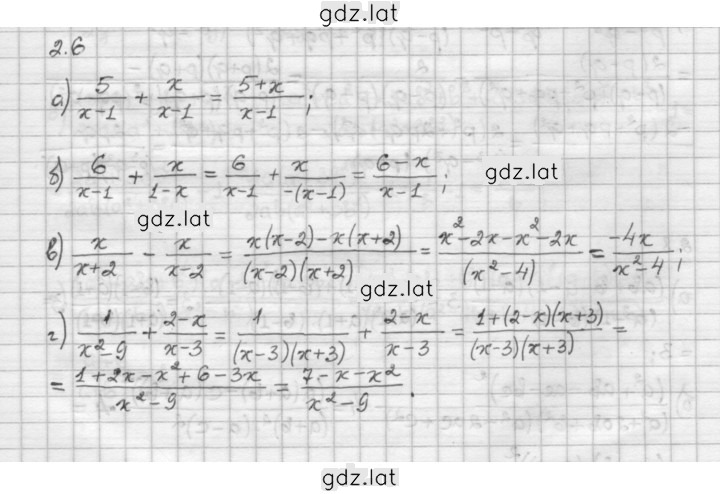 gdz.lat
2.6
а) 5/(x-1) + x/(x-1) = (5+x)/(x-1);
б) 6/(x-1) + x/(1-x) = 6/(x-1) + x/(-(x-1)) = (6-x)/(x-1);
gdz.lat
gdz.lat
в) x/(x+2) - x/(x-2) = (x(x-2)-x(x+2))/((x-2)(x+2)) = (x²-2x-x²-2x)/((x²-4)) = (-4x)/(x²-4);
gdz.lat
г) 1/(x²-9) + (2-x)/(x-3) = 1/((x-3)(x+3)) + (2-x)/(x-3) = (1+(2-x)(x+3))/((x-3)(x+3)) =
= (1+2x-x²+6-3x)/(x²-9) = (7-x-x²)/(x²-9).
gdz.lat